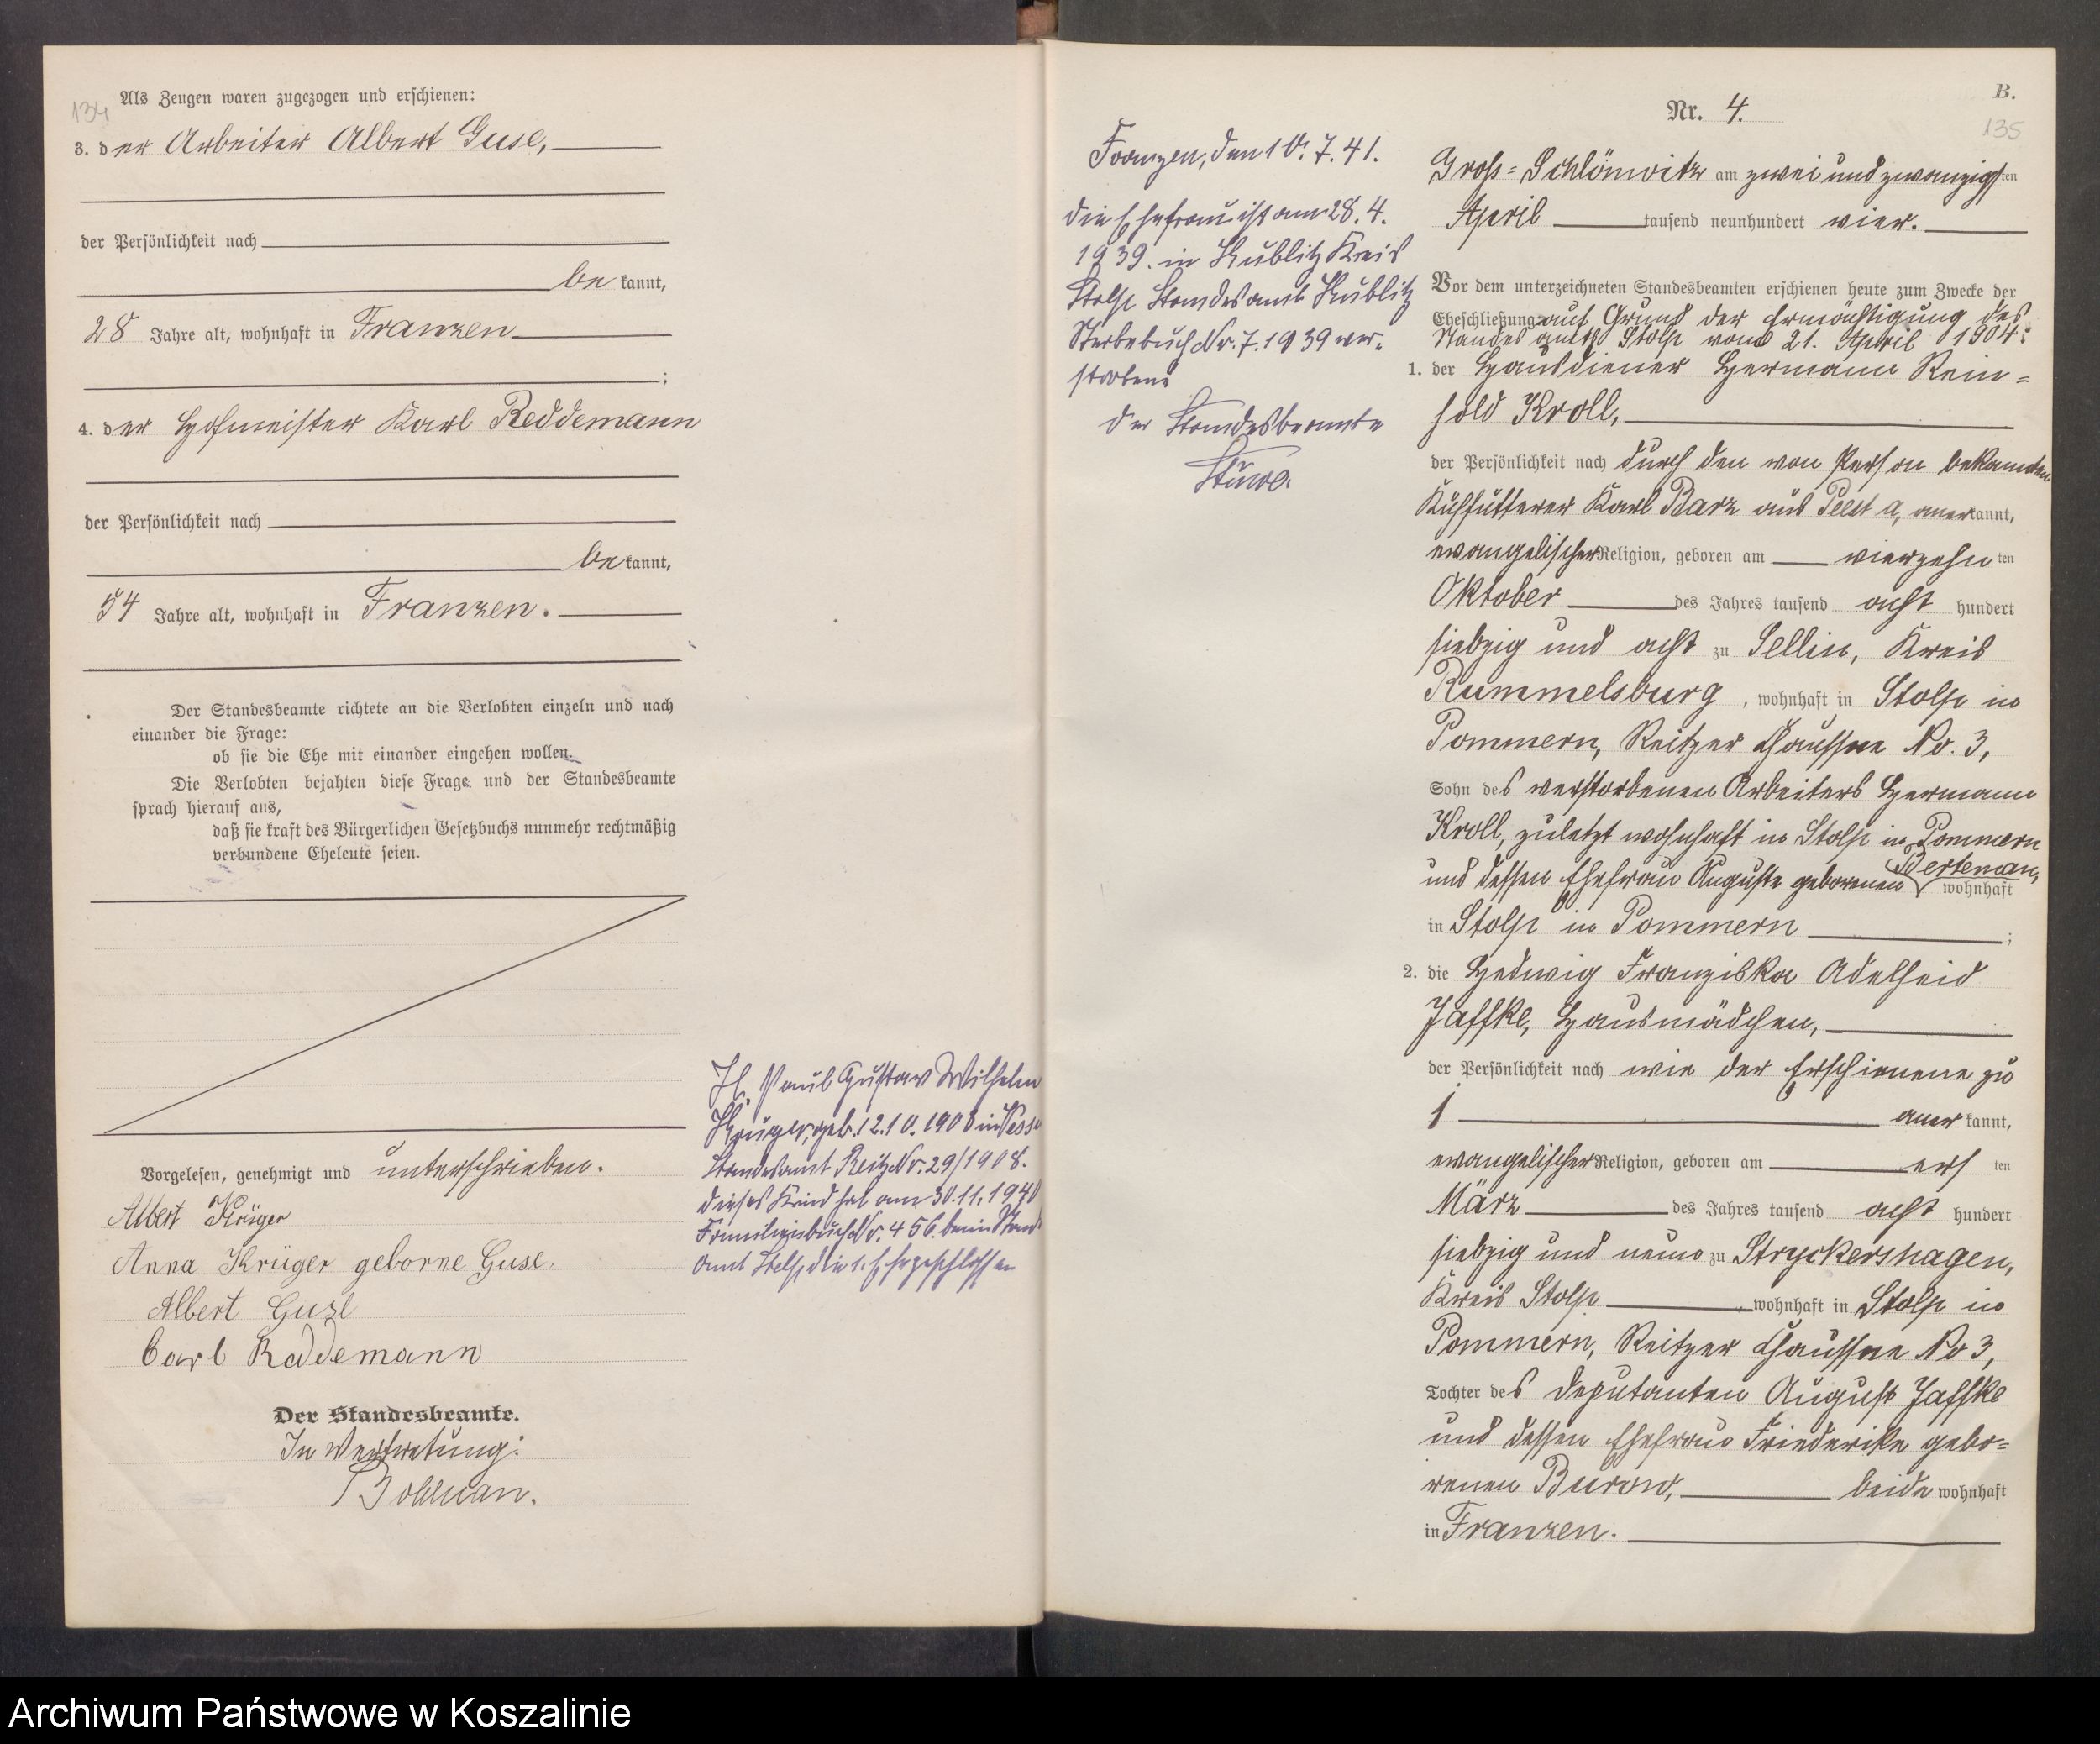 134
Als Zeugen waren zugezogen und erschienen:
3. der Arbeiter Albert Guse,
der Persönlichkeit nach
be kannt,
28 Jahre alt, wohnhaft in Franzen
;
4. der Hofmeister Karl Reddemann
der Persönlichkeit nach
be kannt,
54 Jahre alt, wohnhaft in Franzen.
Der Standesbeamte richtete an die Verlobten einzeln und nach
einander die Frage:
ob sie die Ehe mit einander eingehen wollen.
Die Verlobten bejahten diese Frage und der Standesbeamte
sprach hierauf aus,
daß sie kraft des Bürgerlichen Gesetzbuchs nunmehr rechtmäßig
verbundene Eheleute seien.
Vorgelesen, genehmigt und unterschrieben.
Albert Krüger
Anna Krüger geborne Guse.
Albert Guse
Carl Reddemann
Der Standesbeamte.
In Vertretung:
Paul Gustav Wilhelm
Krüger, geb. 12.10.1908 in
Standesamt Reitz Nr. 29/1908.
dieses Kind hat am 30.11.1940
Familienbuch Nr. 456. beim Stand.
amt Stolp die 1. Ehe geschlossen
Franzen, den 10.7.41.
die Ehefrau ist am 28.4.
1939. in Kublitz Kreis
Stolp Standesamt Kublitz
Sterbebuch Nr. 7.1939 ver-
storben
Der Standesbeamte
Stüwe.
B.
Nr. 4.
135
Gross-Schlönwitz am zwei und zwanzigsten
April tausend neunhundert vier.
Vor dem unterzeichneten Standesbeamten erschienen heute zum Zwecke der
Eheschließung auf Grund der Ermächtigung des
Standesamts Stolp vom 21. April 1904:
1. der Hausdiener Hermann Rein=
hold Kroll,
der Persönlichkeit nach durch den von Person bekannten
Kuhfütterer Karl Barz aus Peest a, anerkannt,
evangelischer Religion, geboren am vierzehnten
Oktober des Jahres tausend acht hundert
siebzig und acht zu Sellin, Kreis
Rummelsburg, wohnhaft in Stolp in
Pommern, Reitzer Chaussee No. 3,
Sohn des verstorbenen Arbeiters Hermann
Kroll, zuletzt wohnhaft in Stolp in Pommern
und dessen Ehefrau Auguste geborenen Berteman, wohnhaft
in Stolp in Pommern ;
2. die Hedwig Franziska Adelheid
Jaffke, Hausmädchen,
der Persönlichkeit nach wie der Erschienene zu
1 aner kannt,
evangelischer Religion, geboren am ersten
März des Jahres tausend acht hundert
siebzig und neun zu Stryckershagen,
Kreis Stolp wohnhaft in Stolp in
Pommern, Reitzer Chaussee No 3,
Tochter des Deputanten August Jaffke
und dessen Ehefrau Friederike gebo=
renen Burow, beide wohnhaft
in Franzen.
Archiwum Państwowe w Koszalinie